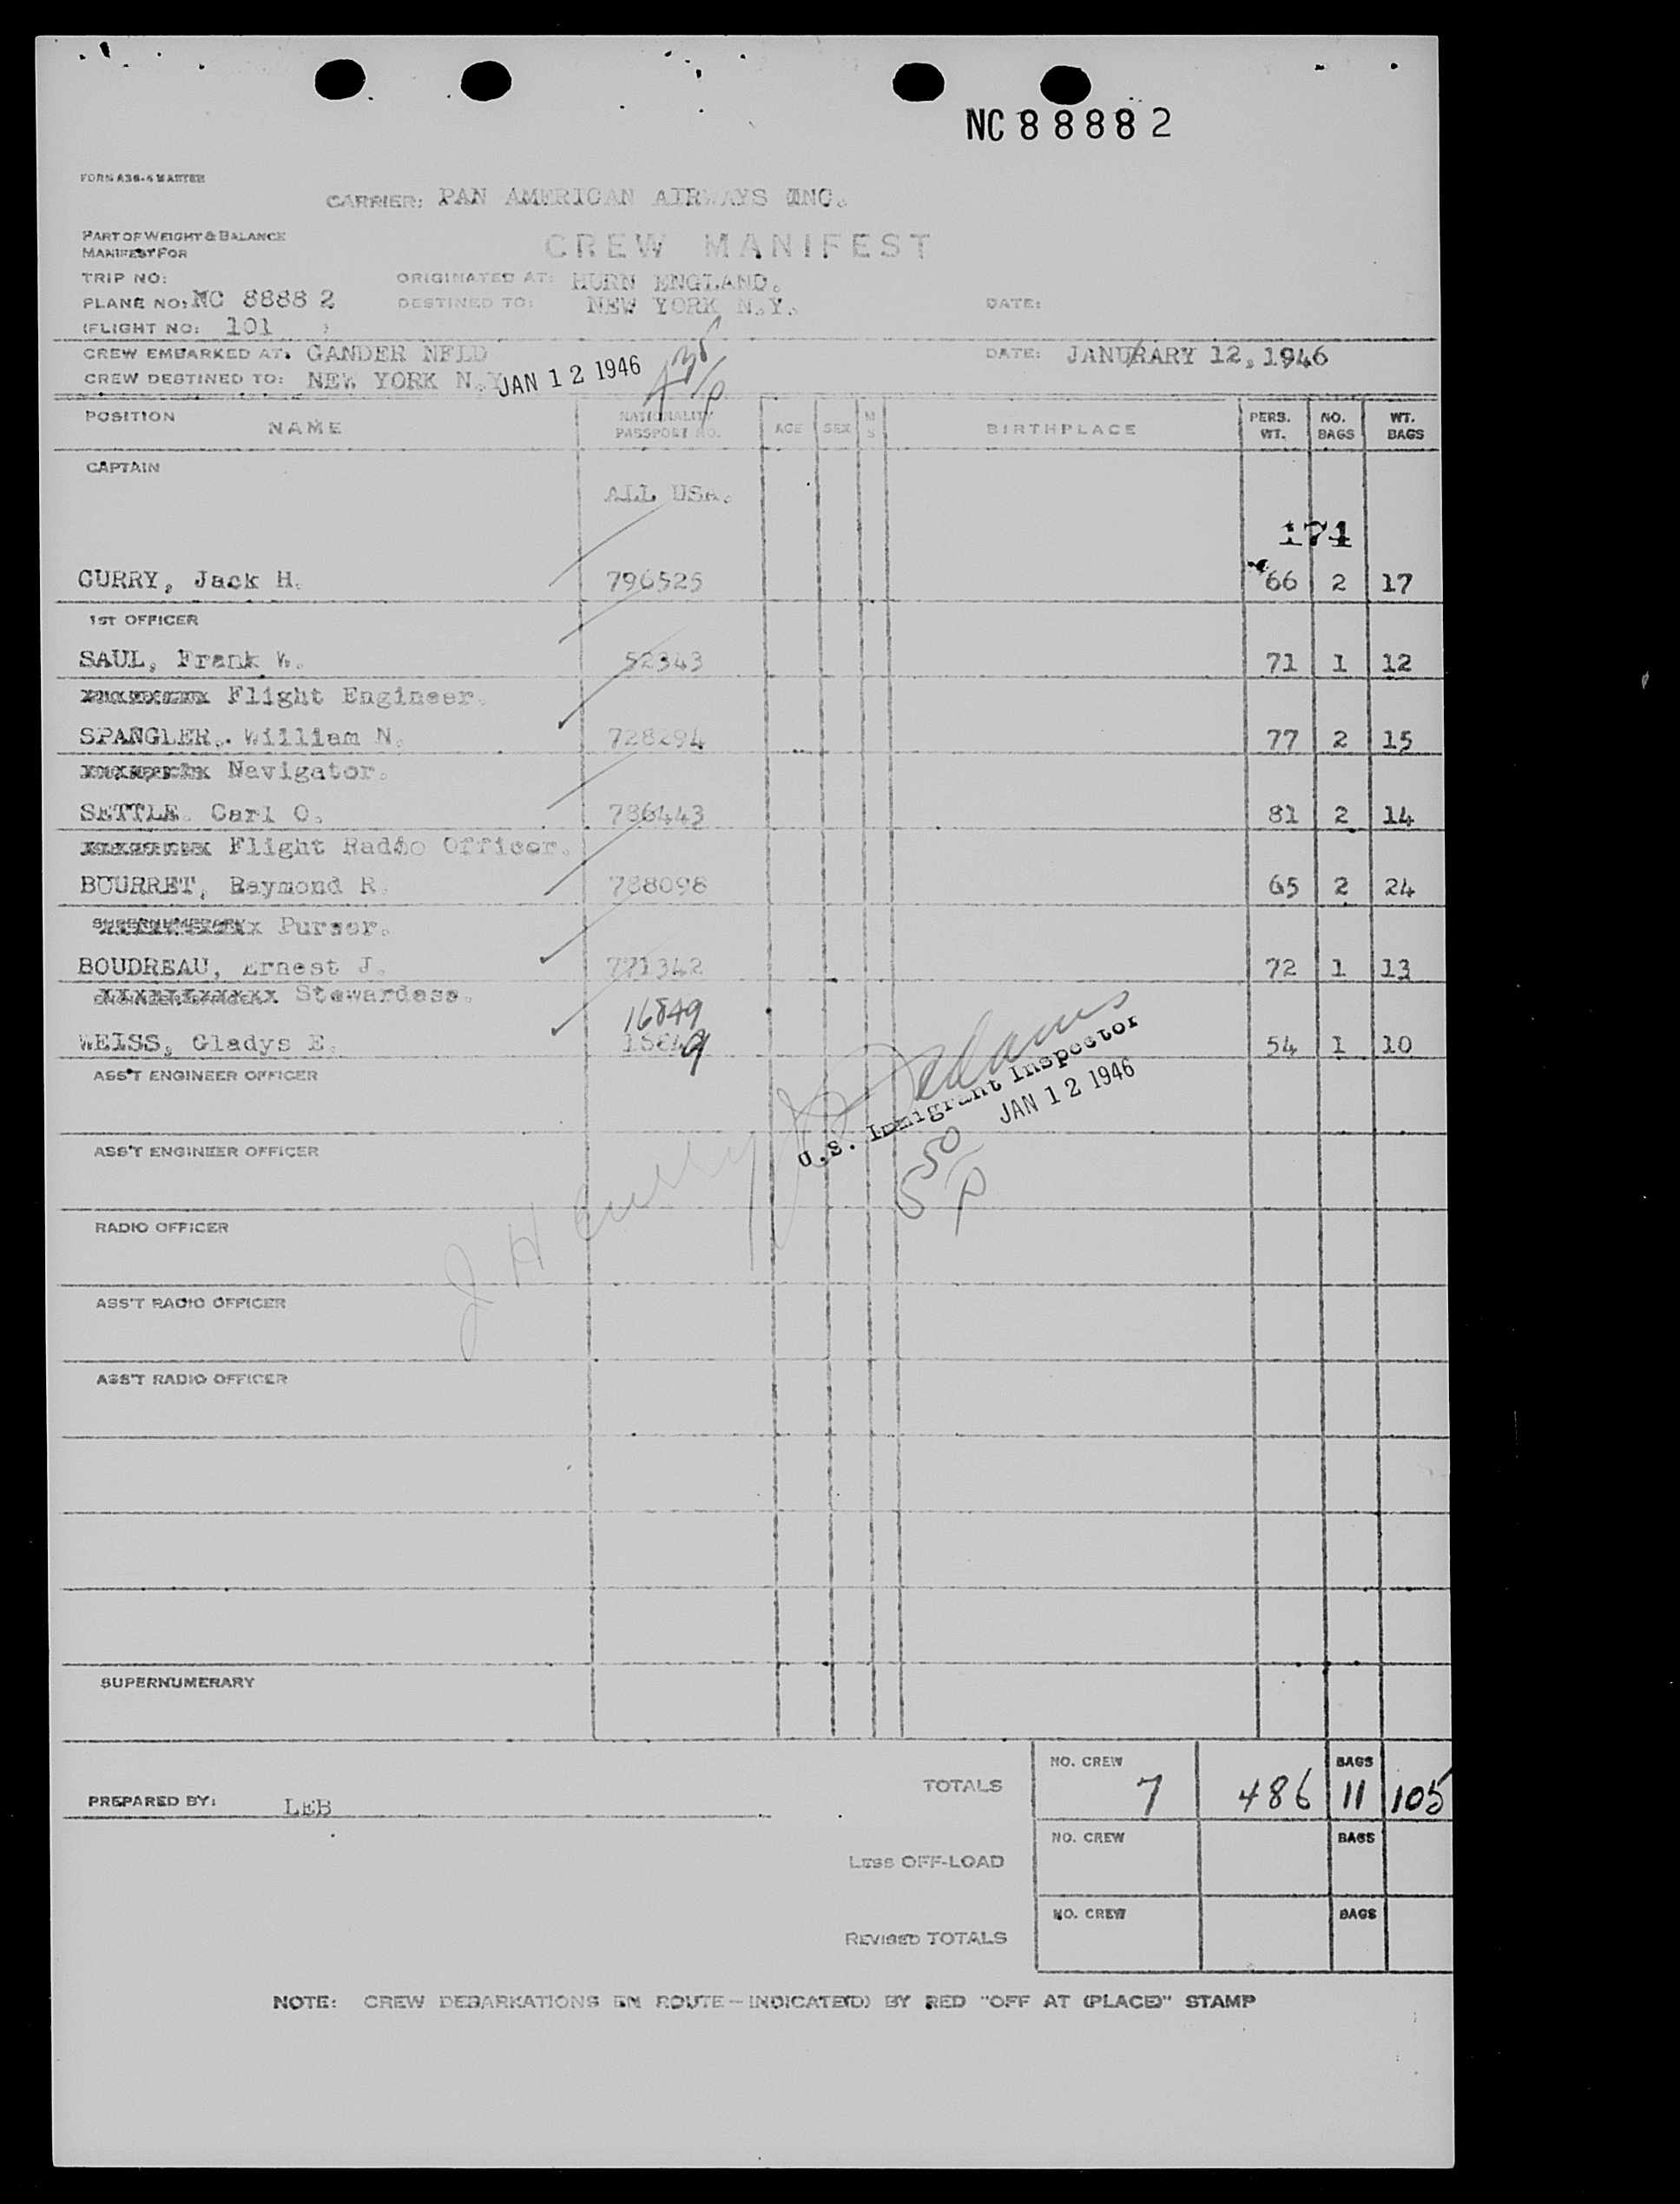 NC 8 8 8 8 2
FORM A36-4 MASTER
CARRIER: PAN AMERICAN AIRWAYS INC.
PART OF WEIGHT & BALANCE
MANIFEST FOR
CREW MANIFEST
TRIP NO: ORIGINATED AT: HURN ENGLAND.
PLANE NO: NC 8888 2 DESTINED TO: NEW YORK N.Y. DATE:
(FLIGHT NO: 101 )
CREW EMBARKED AT. GANDER NFLD DATE: JANURARY 12, 1946
CREW DESTINED TO: NEW YORK N.Y JAN 12 1946
POSITION NAME NATIONALITY PASSPORT NO. AGE SEX M S BIRTHPLACE PERS. WT. NO. BAGS WT. BAGS
CAPTAIN
ALL USA.
171
CURRY, Jack H. 796525 66 2 17
1ST OFFICER
SAUL, Frank W. 52343 71 1 12
Flight Engineer.
SPANGLER,. William N. 728294 77 2 15
Navigator.
SETTLE. Carl O. 786443 81 2 14
Flight Radio Officer.
BOURRET, Raymond R. 788098 65 2 24
Purser.
BOUDREAU, Ernest J. 771342 72 1 13
Stewardess.
16849
WEISS, Gladys E. 54 1 10
ASS'T ENGINEER OFFICER
Adams
U.S. Immigrant Inspector
JAN 12 1946
ASS'T ENGINEER OFFICER
5 50/P
J H Curry
RADIO OFFICER
ASS'T RADIO OFFICER
ASS'T RADIO OFFICER
SUPERNUMERARY
TOTALS NO. CREW 7 486 BAGS 11 105
PREPARED BY: LEB
LESS OFF-LOAD NO. CREW BAGS
REVISED TOTALS NO. CREW BAGS
NOTE: CREW DEBARKATIONS EN ROUTE-INDICATE(D) BY RED "OFF AT (PLACE)" STAMP